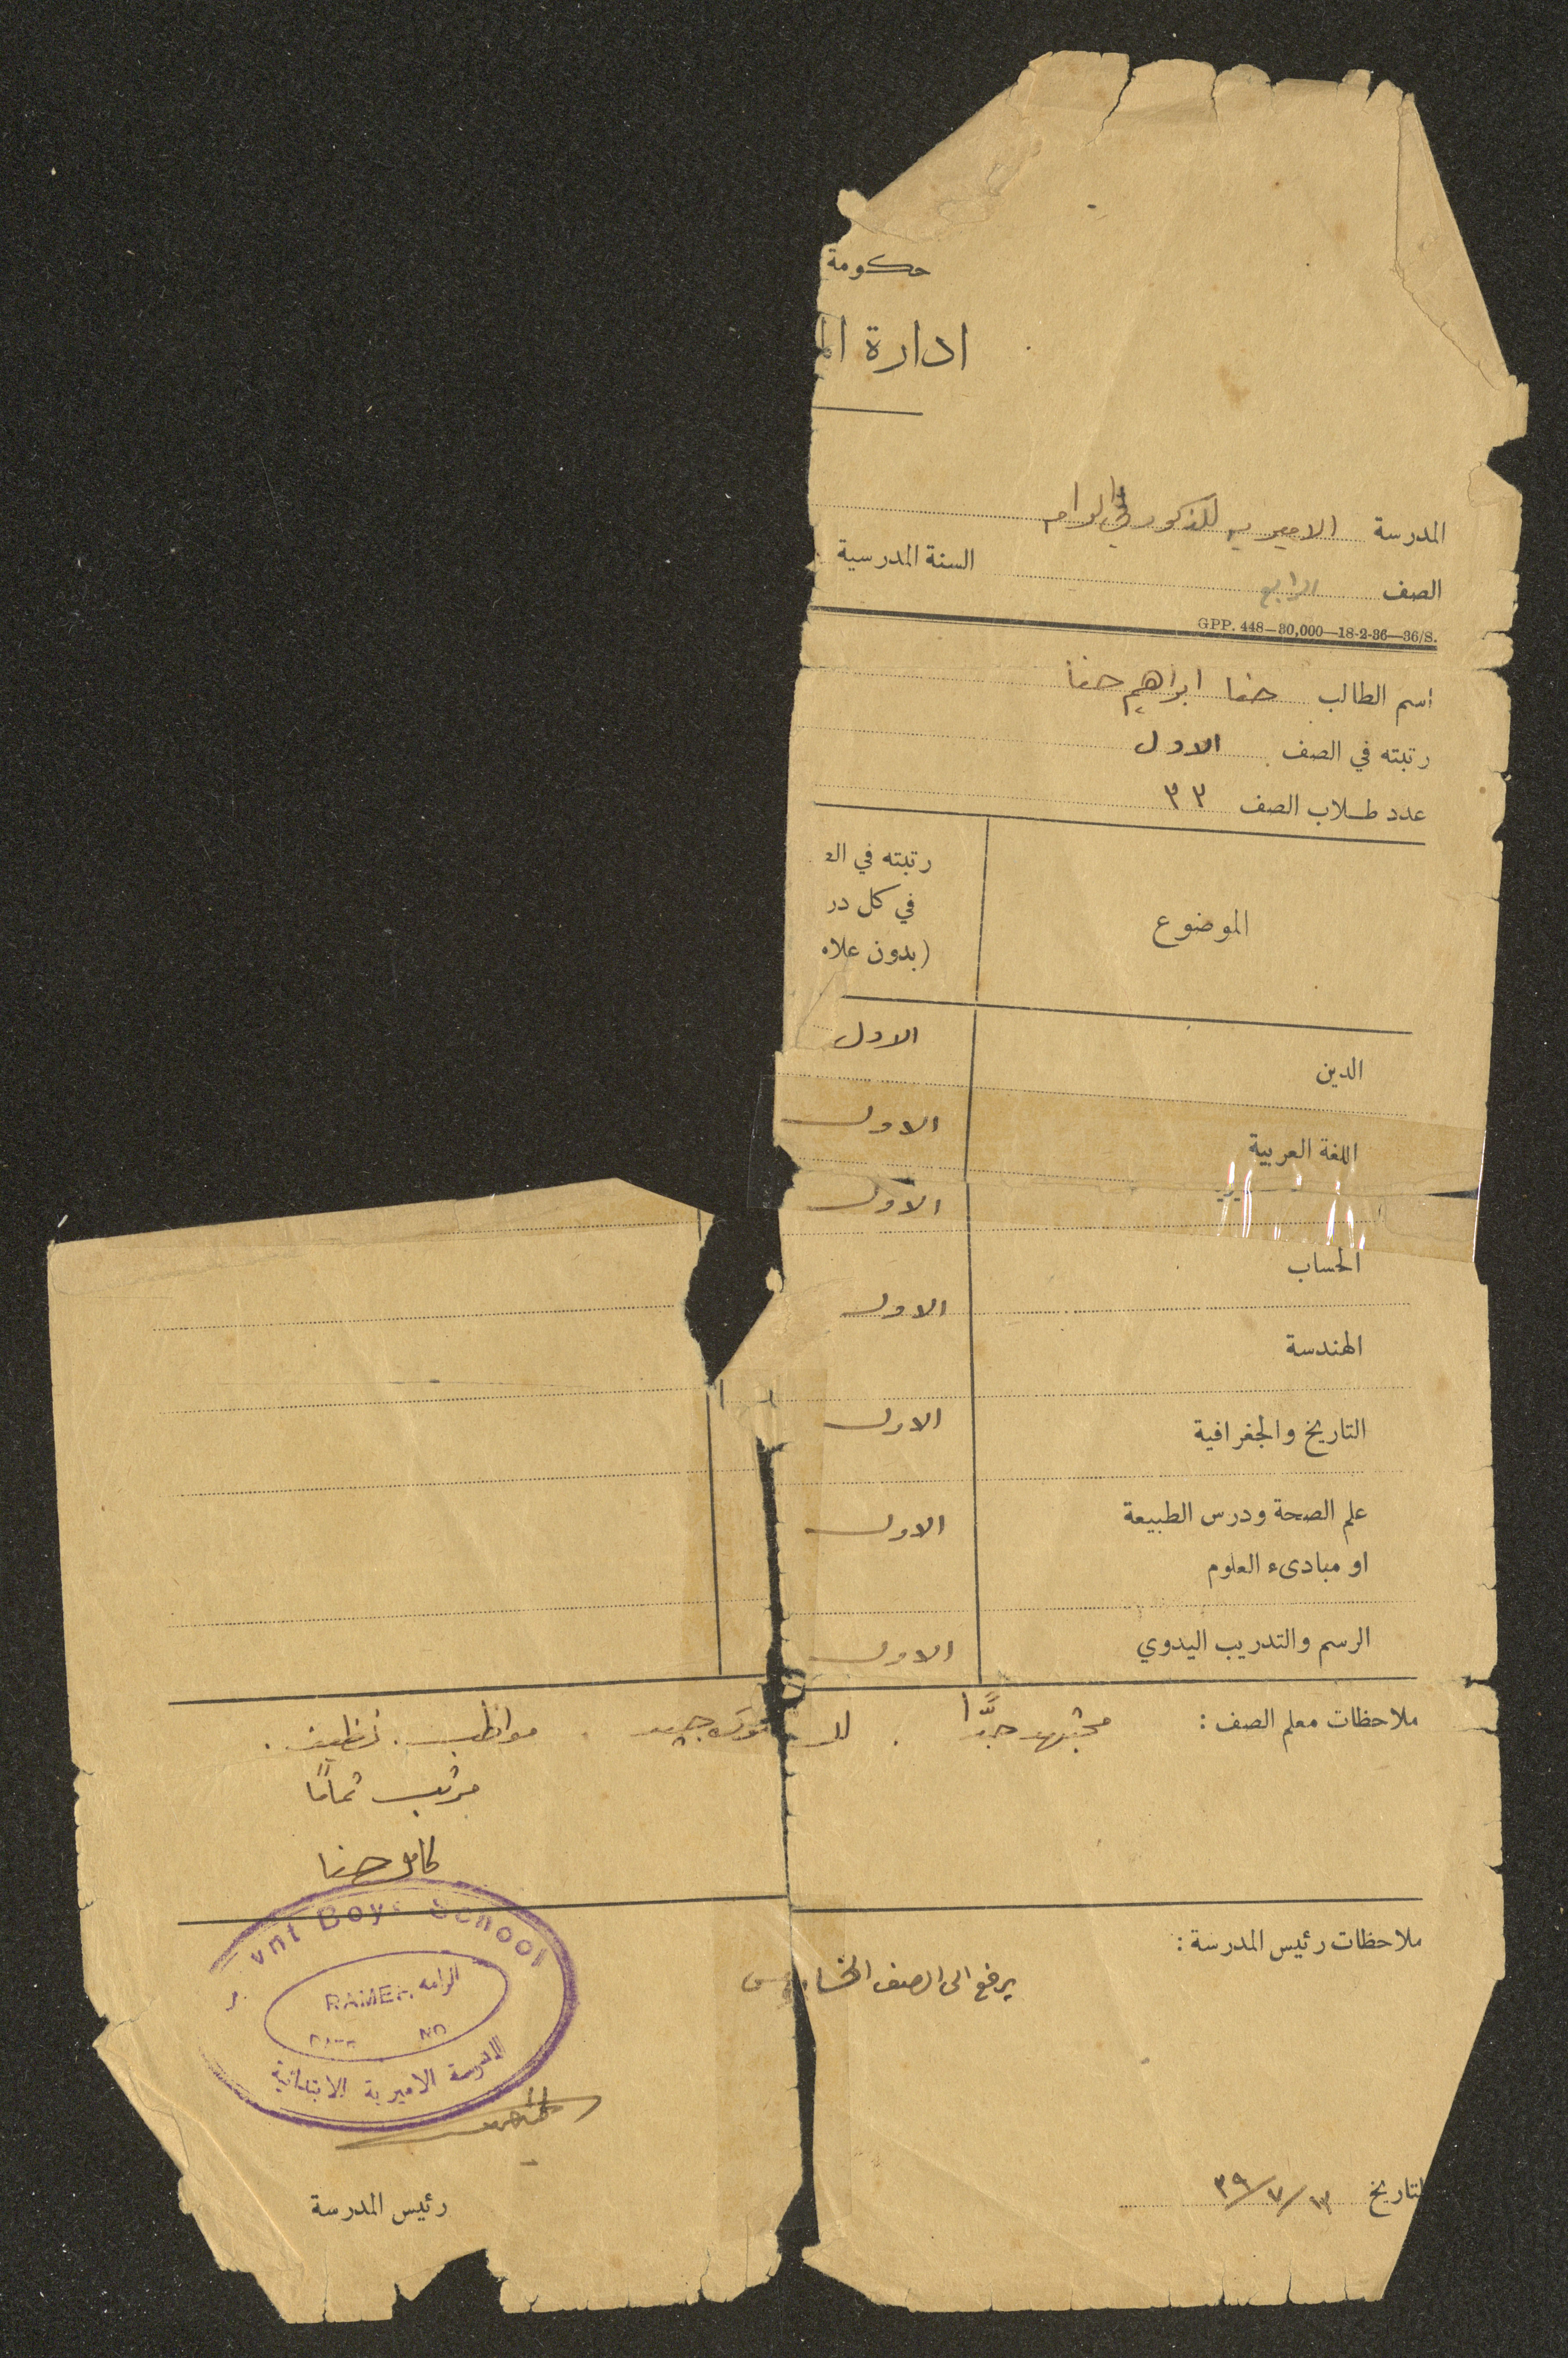 حكومة
ادارة الم
المدرسة الاميرية للذكور في الرامه
الصف الرابع السنة المدرسية
GPP. 448—30,000—18-2-36—36/S.
اسم الطالب حنا ابراهيم حنا
رتبته في الصف الاول
عدد طلاب الصف ٣٣
الموضوع
رتبته في ال
في كل در
(بدون علا
الدين الاول
اللغة العربية الاول
الاول
الحساب الاول
الهندسة
التاريخ والجغرافية الاول
علم الصحة ودرس الطبيعة الاول
او مبادىء العلوم
الرسم والتدريب اليدوي الاول
ملاحظات معلم الصف : مجتهد جدًّا . جيد . مواظب . نظيف .
مرتب تمامًا
كامل حنا
ملاحظات رئيس المدرسة :
يرفع الى الصف الخامس
vnt Boys School
الرامه
RAMEH
المدرسة الاميرية الابتدائية
التاريخ ١٣/٧/٣٩
رئيس المدرسة